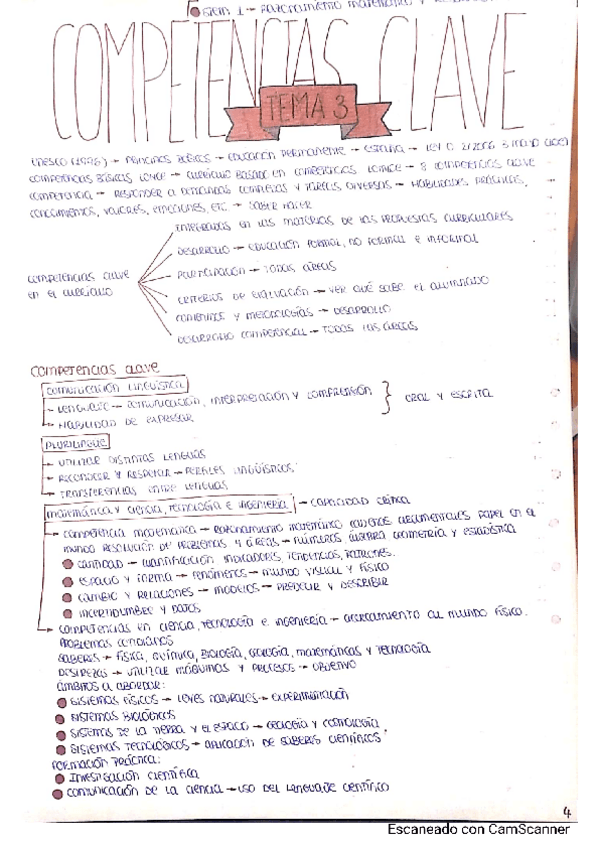 STEM 1 → RAZONAMIENTO MATEMÁTICO Y
COMPETENCIAS CLAVE
TEMA 3
UNESCO → PRINCIPIOS BÁSICOS → EDUCACIÓN PERMANENTE → ESPAÑA → LEY O. 2/2006 3 MAYO (LOE)
COMPETENCIAS BÁSICAS LOMCE → CURRÍCULO BASADO EN COMPETENCIAS LOMCE → 8 COMPETENCIAS CLAVE
COMPETENCIA → RESPONDER A DEMANDAS COMPLEJAS Y TAREAS DIVERSAS → HABILIDADES PRÁCTICAS,
CONOCIMIENTOS, VALORES, EMOCIONES, ETC. → SABER HACER
INTEGRADAS EN LAS MATERIAS DE LAS PROPUESTAS CURRICULARES
DESARROLLO → EDUCACIÓN FORMAL, NO FORMAL E INFORMAL
PARTICIPACIÓN → TODAS ÁREAS
COMPETENCIAS CLAVE
EN EL CURRÍCULO
CRITERIOS DE EVALUACIÓN → VER QUÉ SABE EL ALUMNADO
CONTENIDOS Y METODOLOGÍAS → DESARROLLO
DESARROLLO COMPETENCIAL → TODAS LAS ÁREAS
COMPETENCIAS CLAVE
COMUNICACIÓN LINGÜÍSTICA
LENGUAJE → COMUNICACIÓN, INTERPRETACIÓN Y COMPRENSIÓN } ORAL Y ESCRITA
HABILIDAD DE EXPRESAR
PLURILINGÜE
UTILIZAR DISTINTAS LENGUAS
RECONOCER Y RESPETAR → PERFILES LINGÜÍSTICOS
TRANSFERENCIAS ENTRE LENGUAS
MATEMÁTICA Y CIENCIA, TECNOLOGÍA E INGENIERÍA → CAPACIDAD CRÍTICA
COMPETENCIA MATEMÁTICA → RAZONAMIENTO MATEMÁTICO PAPEL EN EL
MUNDO RESOLUCIÓN DE PROBLEMAS 4 ÁREAS → NÚMEROS, ÁLGEBRA GEOMETRÍA Y ESTADÍSTICA
● CANTIDAD → CUANTIFICACIÓN INDICADORES, TENDENCIAS, PATRONES.
● ESPACIO Y FORMA → FENÓMENOS → MUNDO VISUAL Y FÍSICO
● CAMBIO Y RELACIONES → MODELOS → PREDECIR Y DESCRIBIR
● INCERTIDUMBRE Y DATOS
COMPETENCIAS EN CIENCIA, TECNOLOGÍA E INGENIERÍA → ACERCAMIENTO AL MUNDO FÍSICO.
PROBLEMAS COTIDIANOS
SABERES → FÍSICA, QUÍMICA, BIOLOGÍA, GEOLOGÍA, MATEMÁTICAS Y TECNOLOGÍA
DESTREZAS → UTILIZAR MÁQUINAS Y PROCESOS → OBJETIVO
ÁMBITOS A ABORDAR:
● SISTEMAS FÍSICOS → LEYES NATURALES → EXPERIMENTACIÓN
● SISTEMAS BIOLÓGICOS
● SISTEMAS DE LA TIERRA Y EL ESPACIO → GEOLOGÍA Y COSMOLOGÍA
● SISTEMAS TECNOLÓGICOS → APLICACIÓN DE SABERES CIENTÍFICOS
FORMACIÓN PRÁCTICA:
● INVESTIGACIÓN CIENTÍFICA
● COMUNICACIÓN DE LA CIENCIA → USO DEL LENGUAJE CIENTÍFICO
4
Escaneado con CamScanner